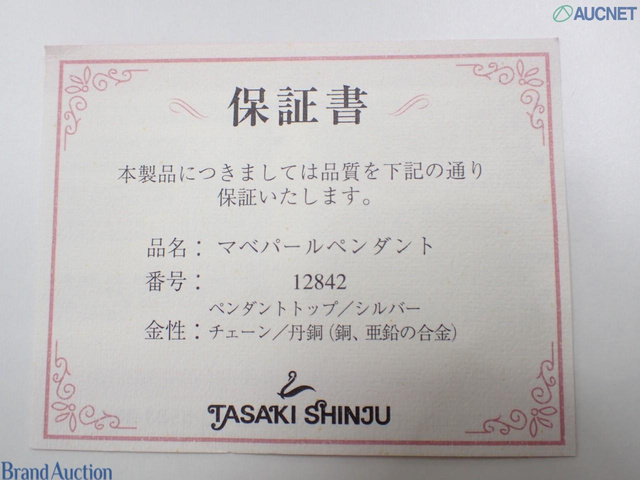 AUCNET
保証書
本製品につきましては品質を下記の通り
保証いたします。
品名：マベパールペンダント
番号：12842
ペンダントトップ／シルバー
金性：チェーン／丹銅（銅、亜鉛の合金）
TASAKI SHINJU
Brand Auction